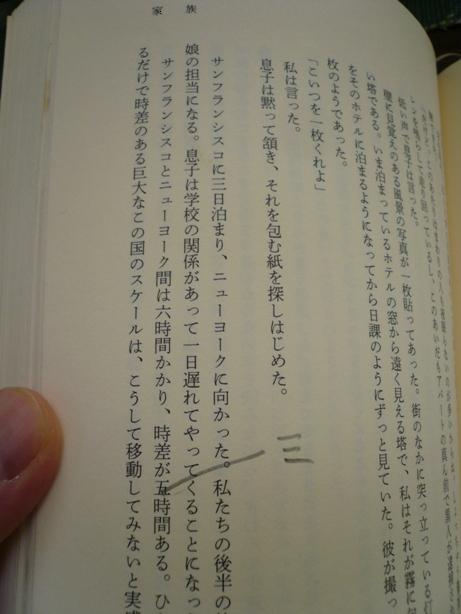 家族
このあいだもアパートの真ん前で黒人が逮捕
低い声で息子は言った。
壁に見覚えのある風景の写真が一枚貼ってあった。街のなかに突っ立っている
い塔である。いま泊まっているホテルの窓から遠く見える塔で、私はそれが霧に
をそのホテルに泊まるようになってから日課のようにずっと見ていた。彼が撮っ
枚のようであった。
「こいつを一枚くれよ」
私は言った。
息子は黙って頷き、それを包む紙を探しはじめた。
サンフランシスコに三日泊まり、ニューヨークに向かった。私たちの後半の
娘の担当になる。息子は学校の関係があって一日遅れてやってくることになっ
サンフランシスコとニューヨーク間は六時間かかり、時差が五時間ある。ひ
るだけで時差のある巨大なこの国のスケールは、こうして移動してみないと実
三